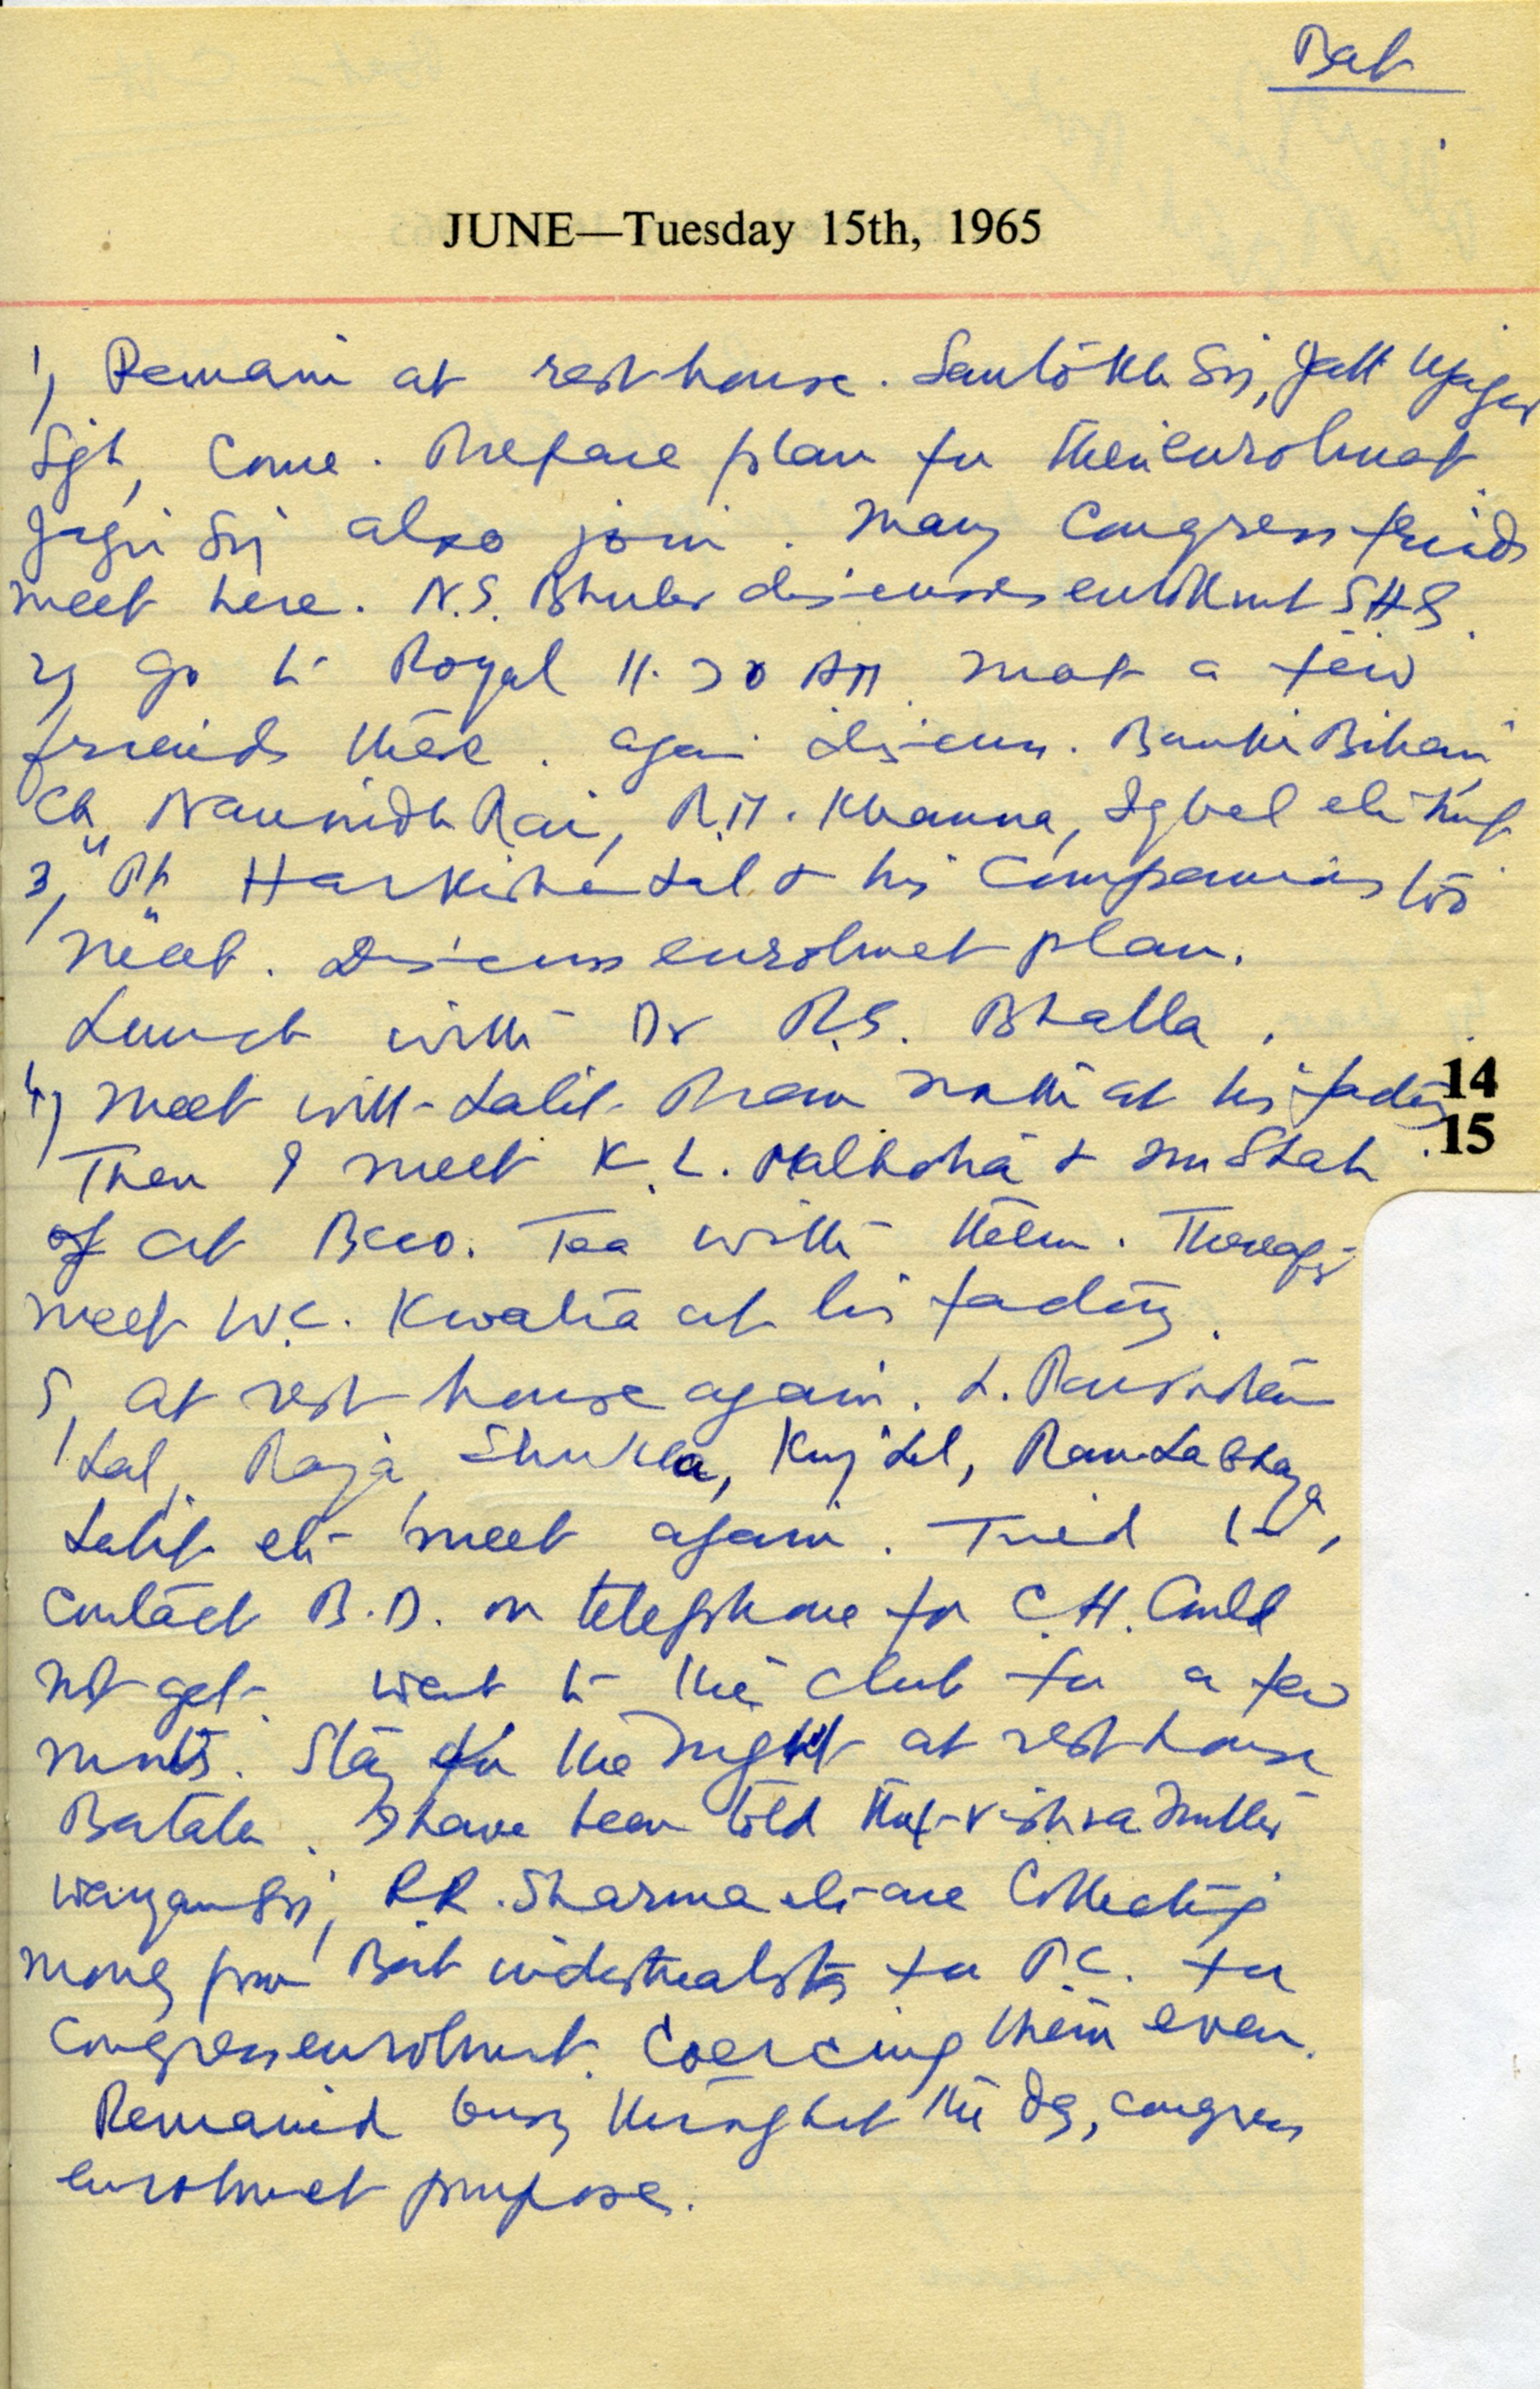 Bat
JUNE—Tuesday 15th, 1965
1, Remain at rest house. Santokh Sn, Jatt Ujagar
Sgh, Come. Prepare plan for their enrolment
Jagir Sn also join. Many Congress friends
meet here. N.S. Bhuler discusses enrolment SHS.
2, go to Royal 11.30 AM meet a few
friends there. again discuss. Banke Bihari
Ch Naunidh Rai, R.M. Khanna, Iqbal etc
3, Pt Harkishen Lal & his Companions too
meet. Discuss enrolment plan.
Lunch with Dr R.S. Bhalla.
4, meet with Lalit Prem Nath at his factory
14
Then I meet K.L. Malhotra & Shah
15
at Beco. Tea with them. Thereafter
meet W.C. Kwatra at his factory.
5, at rest house again. L.
Lal, Raja Shukla, Lal, Ram Labhaya
Lalit etc meet again. Tried to,
contact B.D. on telephone for C.H. Could
not get. went to the club for a few
minutes. Stay for the night at rest house
Batala. I have been told that Vishva Mitter
Waryam Sn, R.R. Sharma etc are Collecting
money from Bat industrialists for P.C. for
Congress enrolment. Coercing them even.
Remained busy throughout the day, congress
enrolment purpose.